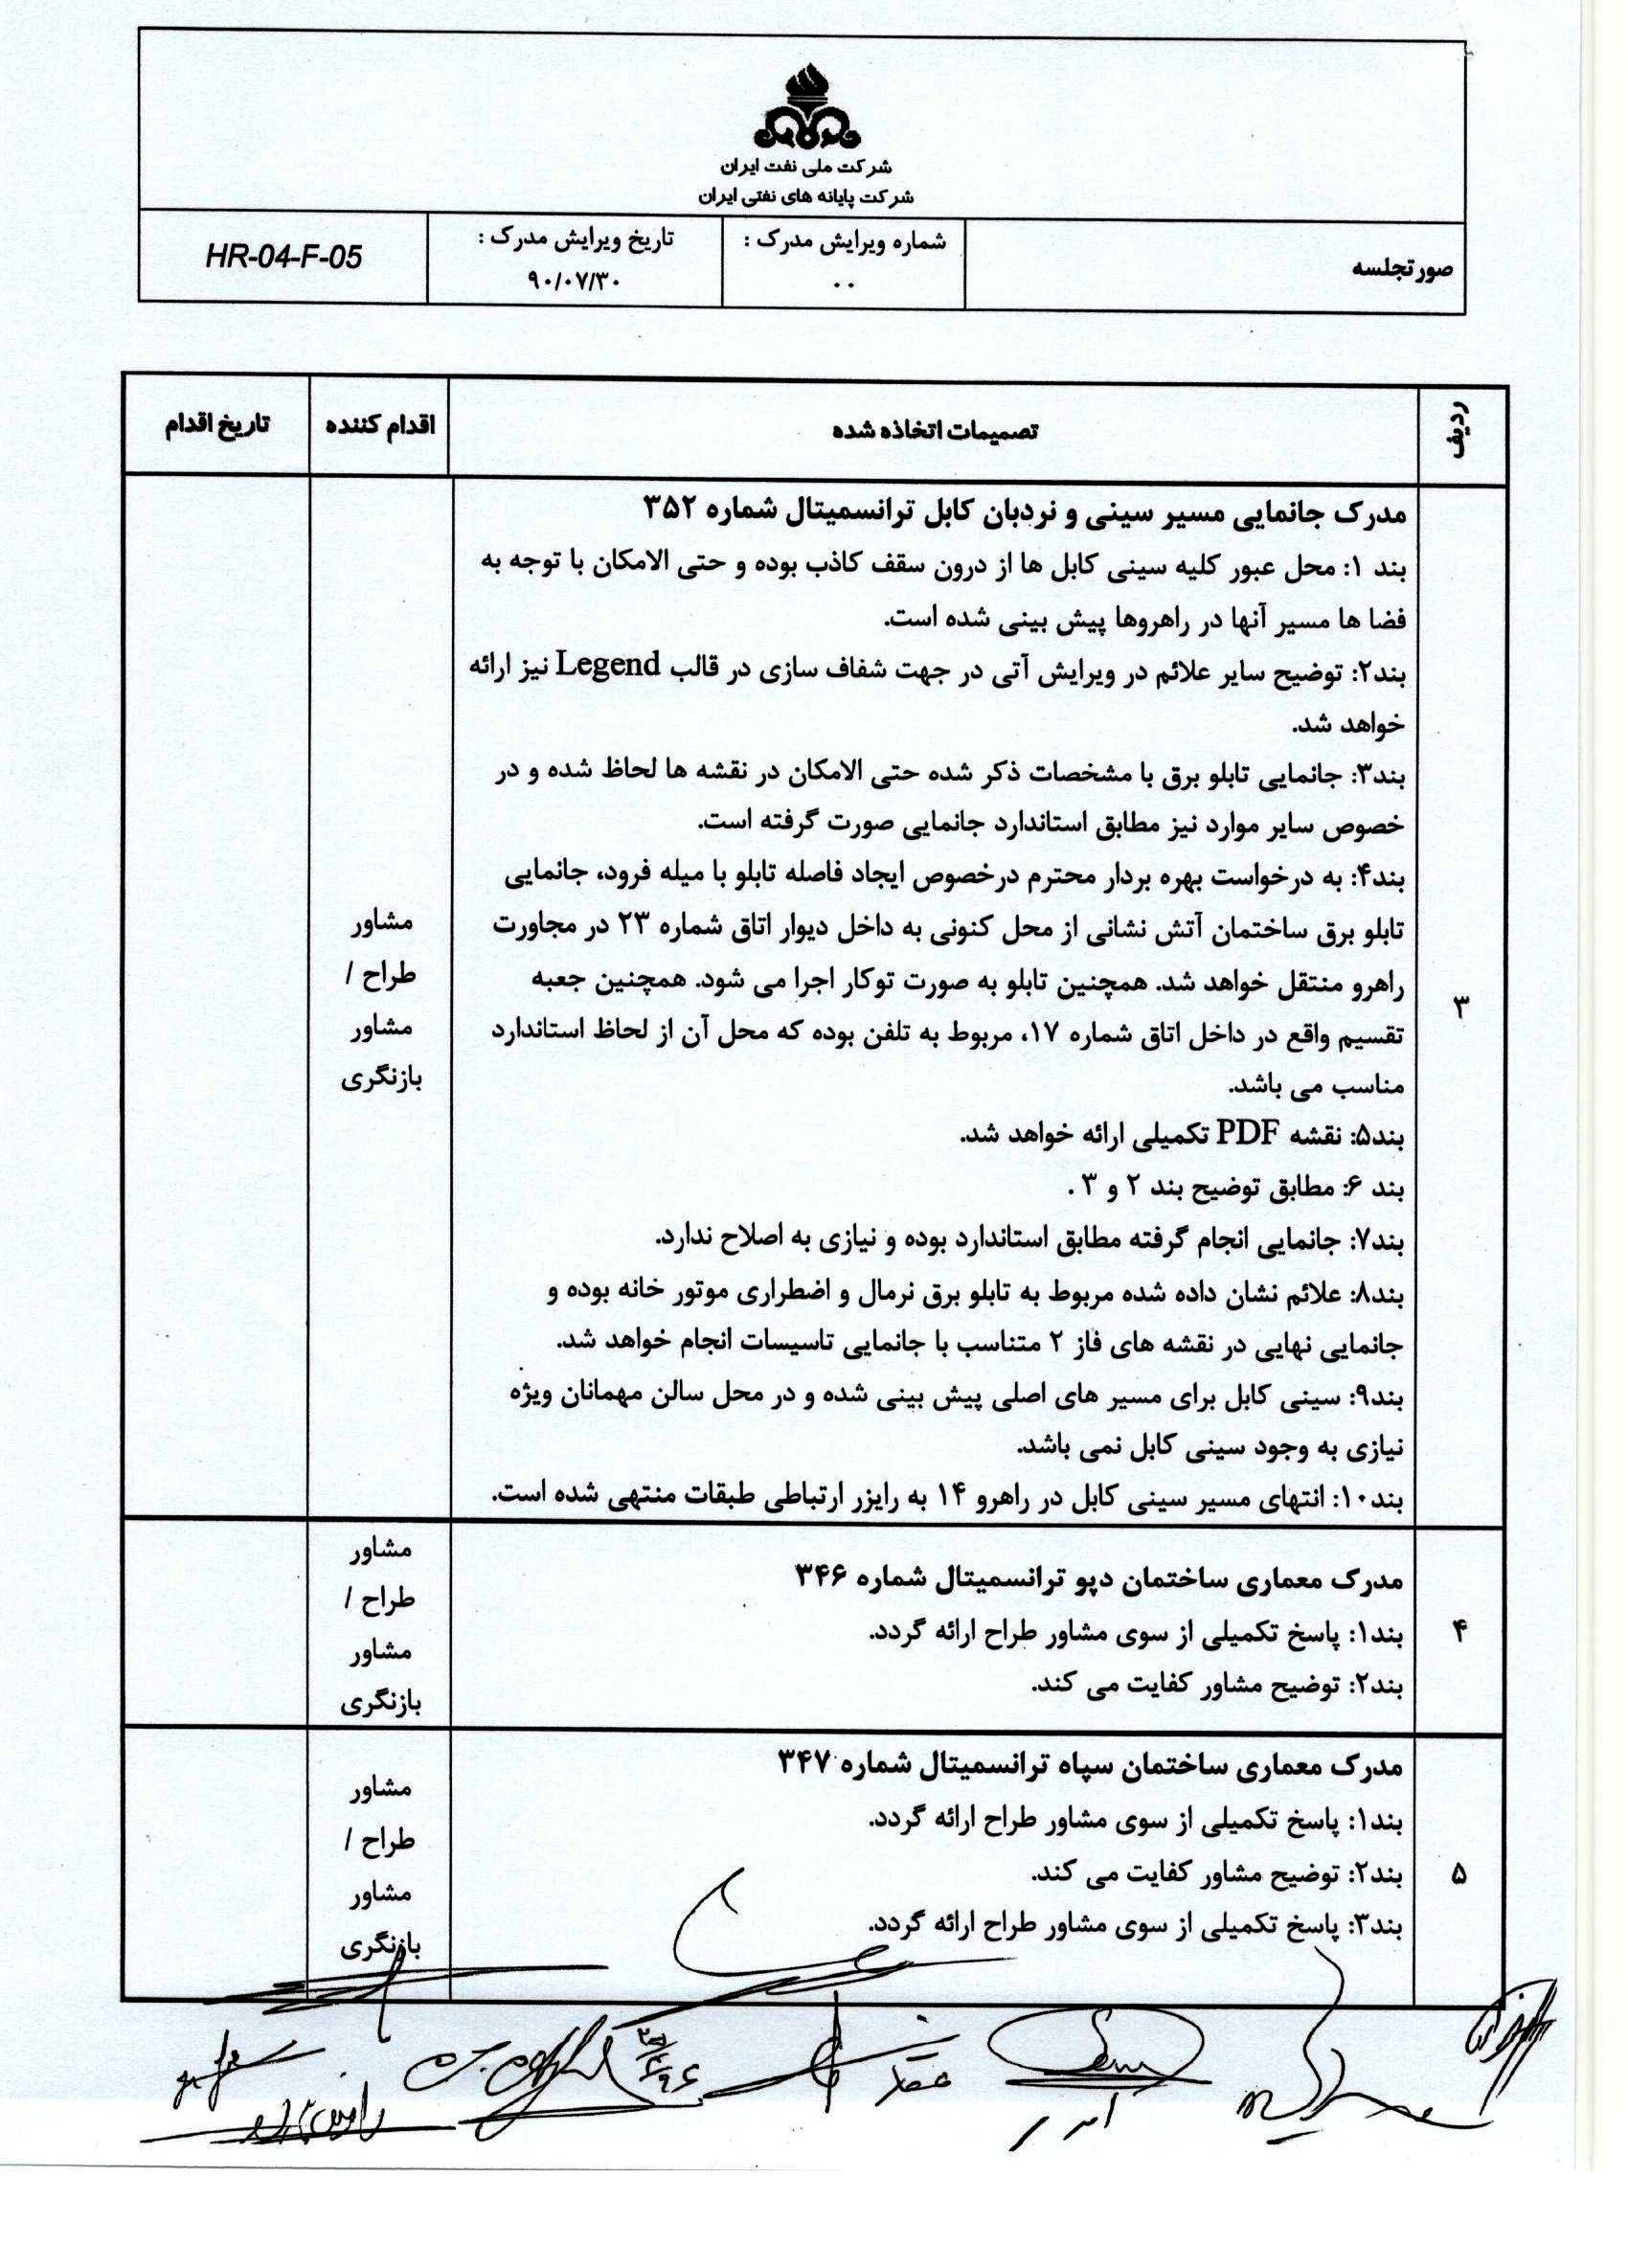 شرکت ملی نفت ایران
شرکت پایانه های نفتی ایران
صورتجلسه
شماره ویرایش مدرک :
۰۰
تاریخ ویرایش مدرک :
۹۰/۰۷/۳۰
HR-04-F-05
ردیف
تصمیمات اتخاذه شده
اقدام کننده
تاریخ اقدام
۳
مدرک جانمایی مسیر سینی و نردبان کابل ترانسمیتال شماره ۳۵۲
بند ۱: محل عبور کلیه سینی کابل ها از درون سقف کاذب بوده و حتی الامکان با توجه به
فضا ها مسیر آنها در راهروها پیش بینی شده است.
بند۲: توضیح سایر علائم در ویرایش آتی در جهت شفاف سازی در قالب Legend نیز ارائه
خواهد شد.
بند۳: جانمایی تابلو برق با مشخصات ذکر شده حتی الامکان در نقشه ها لحاظ شده و در
خصوص سایر موارد نیز مطابق استاندارد جانمایی صورت گرفته است.
بند۴: به درخواست بهره بردار محترم درخصوص ایجاد فاصله تابلو با میله فرود، جانمایی
تابلو برق ساختمان آتش نشانی از محل کنونی به داخل دیوار اتاق شماره ۲۳ در مجاورت
راهرو منتقل خواهد شد. همچنین تابلو به صورت توکار اجرا می شود. همچنین جعبه
تقسیم واقع در داخل اتاق شماره ۱۷، مربوط به تلفن بوده که محل آن از لحاظ استاندارد
مناسب می باشد.
بند۵: نقشه PDF تکمیلی ارائه خواهد شد.
بند ۶: مطابق توضیح بند ۲ و ۳ .
بند۷: جانمایی انجام گرفته مطابق استاندارد بوده و نیازی به اصلاح ندارد.
بند۸: علائم نشان داده شده مربوط به تابلو برق نرمال و اضطراری موتور خانه بوده و
جانمایی نهایی در نقشه های فاز ۲ متناسب با جانمایی تاسیسات انجام خواهد شد.
بند۹: سینی کابل برای مسیر های اصلی پیش بینی شده و در محل سالن مهمانان ویژه
نیازی به وجود سینی کابل نمی باشد.
بند۱۰: انتهای مسیر سینی کابل در راهرو ۱۴ به رایزر ارتباطی طبقات منتهی شده است.
مشاور
طراح /
مشاور
بازنگری
۴
مدرک معماری ساختمان دپو ترانسمیتال شماره ۳۴۶
بند۱: پاسخ تکمیلی از سوی مشاور طراح ارائه گردد.
بند۲: توضیح مشاور کفایت می کند.
مشاور
طراح /
مشاور
بازنگری
۵
مدرک معماری ساختمان سپاه ترانسمیتال شماره ۳۴۷
بند۱: پاسخ تکمیلی از سوی مشاور طراح ارائه گردد.
بند۲: توضیح مشاور کفایت می کند.
بند۳: پاسخ تکمیلی از سوی مشاور طراح ارائه گردد.
مشاور
طراح /
مشاور
بازنگری